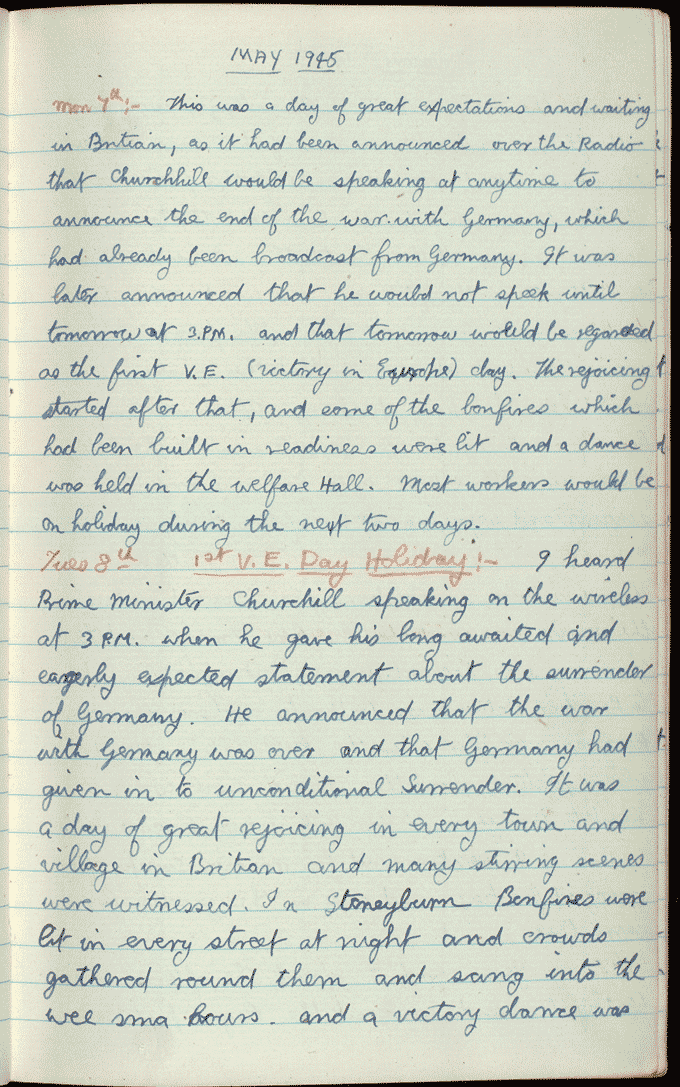 MAY 1945
Mon 7th:- This was a day of great expectations and waiting
in Britian, as it had been announced over the Radio
that Churchhill would be speaking at anytime to
announce the end of the war with Germany, which
had already been broadcast from Germany. It was
later announced that he would not speek until
tomorrow at 3.P.M. and that tomorrow would be regarded
as the first V.E. (victory in Europe) day. The rejoicing
started after that, and some of the bonfires which
had been built in readiness were lit and a dance
was held in the welfare Hall. Most workers would be
on holiday during the next two days.
Tues 8th 1st V.E. Day Holiday:- I heard
Prime Minister Churchill speaking on the wireless
at 3 P.M. when he gave his long awaited and
eagerly expected statement about the surrender
of Germany. He announced that the war
with Germany was over and that Germany had
given in to unconditional Surrender. It was
a day of great rejoicing in every town and
village in Britian and many stirring scenes
were witnessed. In Stoneyburn Bonfires were
lit in every street at night and crowds
gathered round them and sang into the
wee sma hours. and a victory dance was